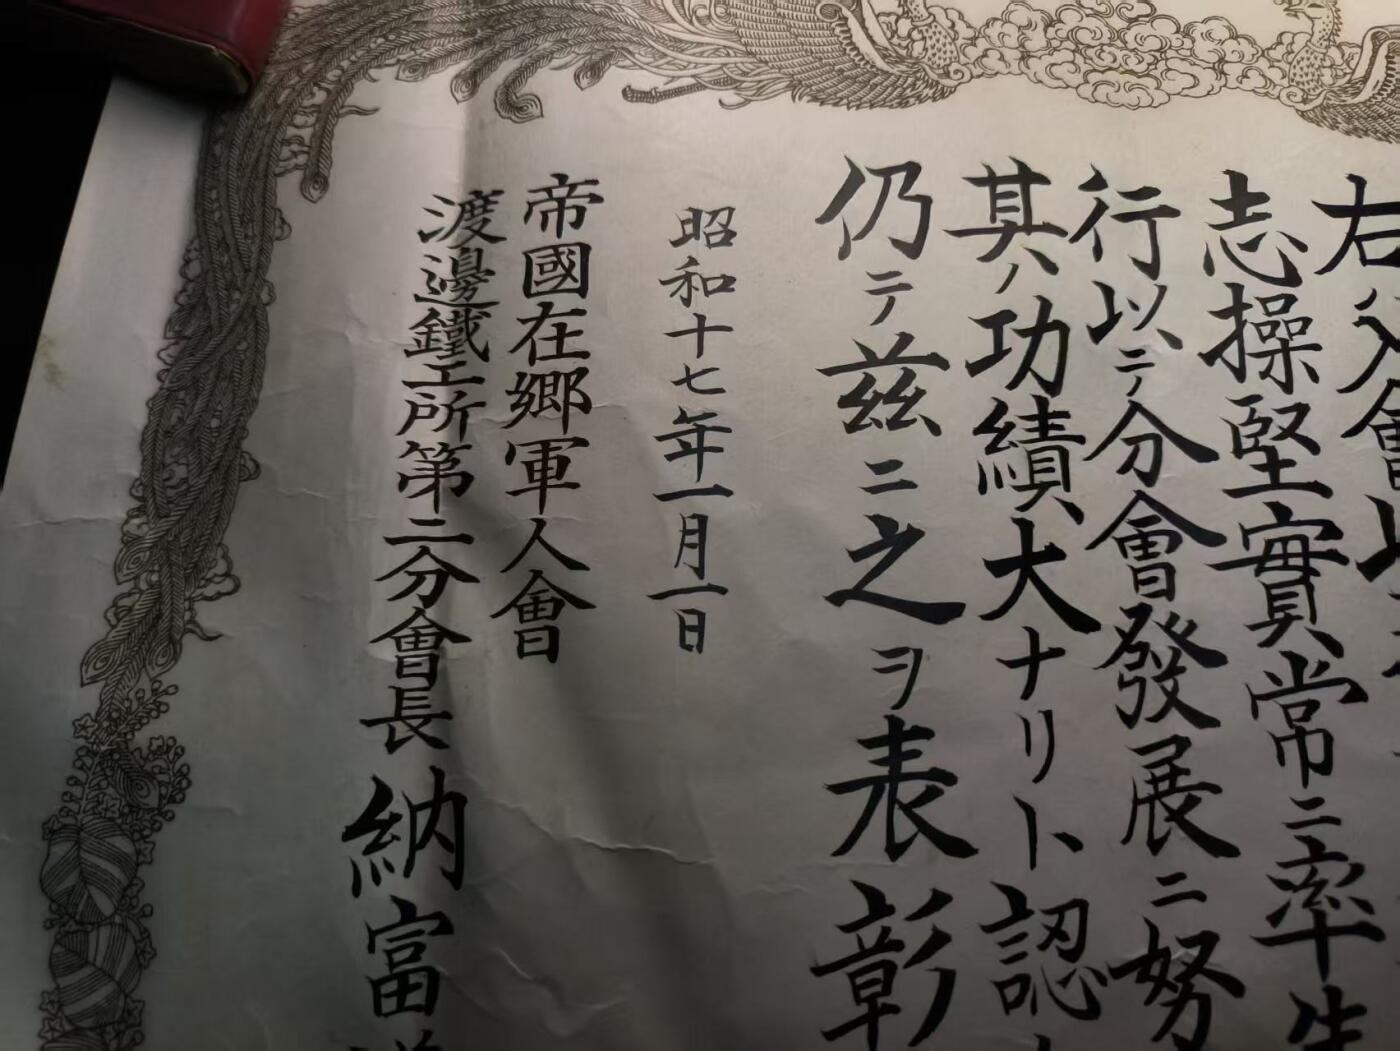 右入會
志操堅實常ニ率先
行以テ分會發展ニ努
其ノ功績大ナリト認
仍テ茲ニ之ヲ表彰
昭和十七年一月一日
帝國在郷軍人會
渡邊鐵工所第二分會長納富